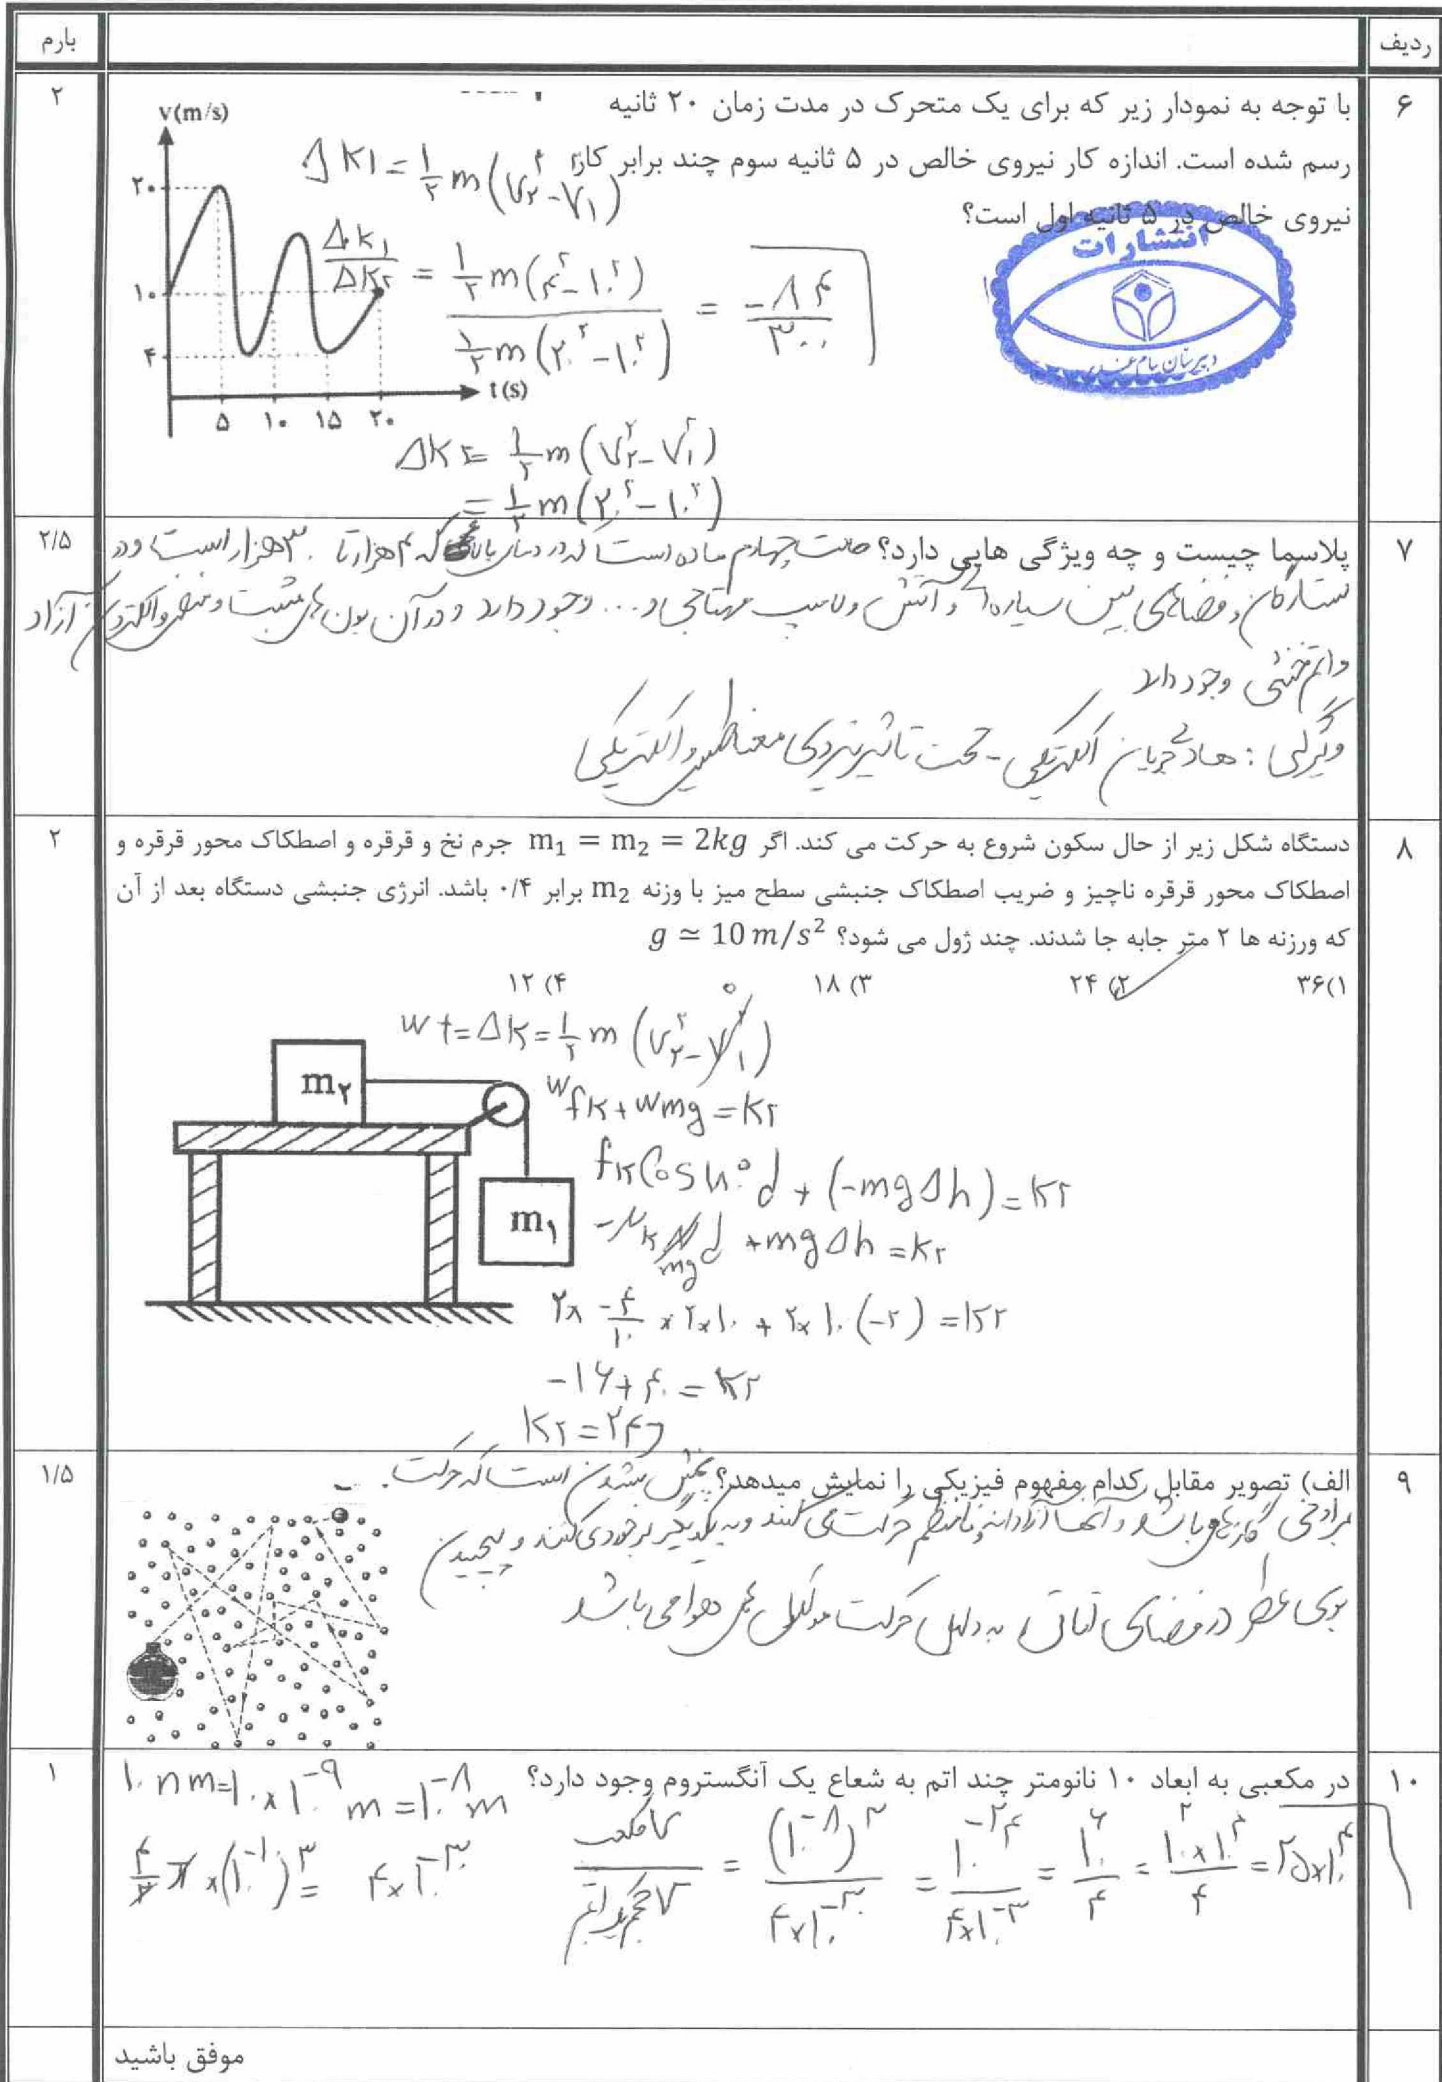 ردیف
بارم
۶
با توجه به نمودار زیر که برای یک متحرک در مدت زمان ۲۰ ثانیه
۲
رسم شده است. اندازه کار نیروی خالص در ۵ ثانیه سوم چند برابر کار
نیروی خالص در ۵ ثانیه اول است؟
انتشارات
v(m/s)
۲۰
۱۰
۴
t(s)
۵ ۱۰ ۱۵ ۲۰
ΔK۱ = ۱/۲ m(V۲² - V۱²)
ΔK۱/ΔK۲ = ۱/۲ m(۴² - ۱۰²) / ۱/۲ m(۲۰² - ۱۰²) = -۸۴/۳۰۰
ΔK۲ = ۱/۲ m(V۲² - V۱²)
= ۱/۲ m(۲۰² - ۱۰²)
۷
پلاسما چیست و چه ویژگی هایی دارد؟ حالت چهارم ماده است که در دمای بالای که ۴ هزار تا ۳۰ هزار است و در
۲/۵
ستارگان و فضاهای بین سیاره ای و آتش و لامپ مهتابی و... وجود دارد و در آن یون های مثبت و منفی و الکترون آزاد
و اتم خنثی وجود دارد
ویژگی : هادی جریان الکتریکی - تحت تاثیر نیروی مغناطیسی و الکتریکی
۸
دستگاه شکل زیر از حال سکون شروع به حرکت می کند. اگر m₁ = m₂ = 2kg جرم نخ و قرقره و اصطکاک محور قرقره و
۲
اصطکاک محور قرقره ناچیز و ضریب اصطکاک جنبشی سطح میز با وزنه m₂ برابر ۰/۴ باشد. انرژی جنبشی دستگاه بعد از آن
که ورزنه ها ۲ متر جابه جا شدند. چند ژول می شود؟ g ≃ 10 m/s²
۱)۳۶ ۲) ۲۴ ۳) ۱۸ ۴) ۱۲
wt = ΔK = ۱/۲ m (V۲² - V۱²) ۰
m۲
WfK + Wmg = K۲
fK Cos ۱۸۰° d + (-mgΔh) = K۲
m۱
-μK N d + mgΔh = K۲
mg
۲× -۴/۱۰ × ۲×۱۰ + ۲×۱۰ (-۲) = K۲
-۱۶+۴۰ = K۲
K۲ = ۲۴J
۹
الف) تصویر مقابل کدام مفهوم فیزیکی را نمایش میدهد؟ پخش شدن است که حرکت
۱/۵
براونی گازها می باشد و آنها آزادانه و نامنظم حرکت می کنند و به یکدیگر برخورد می کنند و پیچیدن
بوی عطر در فضای اتاق به دلیل حرکت مولکول های هوا می باشد
۱۰
در مکعبی به ابعاد ۱۰ نانومتر چند اتم به شعاع یک آنگستروم وجود دارد؟
۱
۱۰ nm = ۱۰ × ۱۰⁻⁹ m = ۱۰⁻⁸ m
۴/۳ π × (۱۰⁻¹⁰)³ = ۴×۱۰⁻³⁰
V مکعب / V حجم یک اتم = (۱۰⁻⁸)³ / ۴×۱۰⁻³⁰ = ۱۰⁻²⁴ / ۴×۱۰⁻³⁰ = ۱۰⁶/۴ = ۱۰²×۱۰⁴/۴ = ۲۵×۱۰⁴
موفق باشید